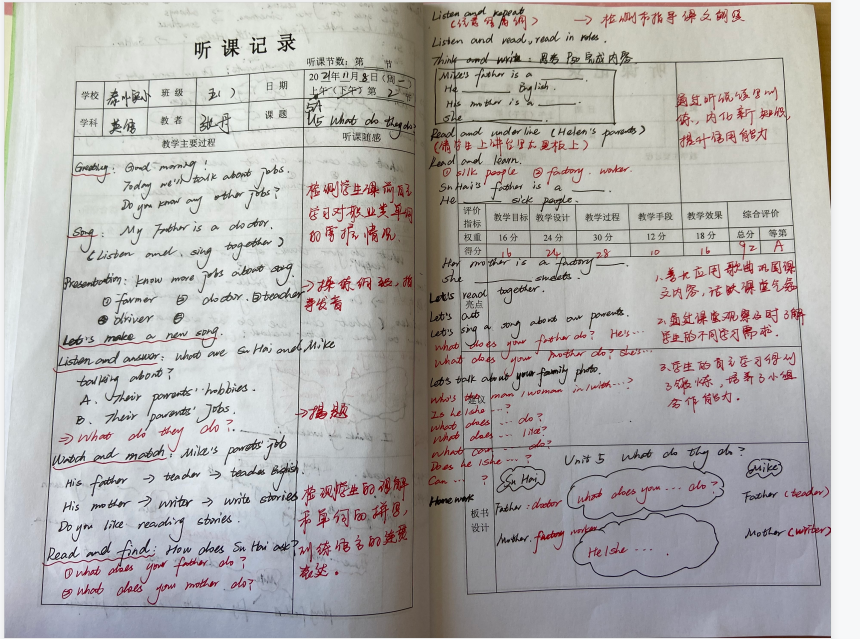 听课记录
听课节数：第 节
学校 班级 五(1) 日期 2021年11月8日(周一)
上午(下午)第2节
学科 英语 教者 张丹 课题 5A
U5 What do they do?
教学主要过程 听课随感
Greeting: Good morning!
Today we'll talk about jobs.
Do you know any other jobs?
Song: My Father is a doctor.
(Listen and sing together)
检测学生课前自主
学习对职业类单词
的掌握情况.
Presentation: know more jobs about song.
① farmer ② doctor. ③ teacher
④ driver ⑤
Let's make a new song.
Listen and answer: what are Su Hai and Mike
talking about?
A. Their parents' hobbies.
B. Their parents' jobs.
→揭题
⇒ What do they do?
Watch and match: Mike's parents' job
His father → teacher → teaches English.
His mother → writer → write stories
Do you like reading stories.
检视学生的理解
和单词的拼写,
训练语言的连贯
表达。
Read and find: How does Su Hai ask?
① what does your father do?
② What does your mother do?
Listen and repeat
→ 检测和指导课文朗读
Listen and read, read in roles.
Think and write: 思考 P50 完成内容
Mike's father is a ____.
He ____ English.
His mother is a ____.
She ____.
通过听说读写训
练, 内化新知识,
提升语用能力
Read and underline (Helen's parents)
(请学生上讲台写在黑板上)
Read and learn.
① silk people ② factory worker.
Su Hai's father is a ____.
He ____ sick people.
评价指标 教学目标 教学设计 教学过程 教学手段 教学效果 综合评价
权重 16分 24分 30分 12分 18分 总分 等第
得分 16 24 28 10 16 92 A
Her mother is a factory ____
She ____ sweets.
Let's read together.
亮点
Let's act
Let's sing a song about our parents.
What does your father do? He's...
What does your mother do? She's...
1. 善于应用歌曲巩固课
文内容, 活跃课堂气氛
2. 通过课堂观察及时了解
学生的不同学习需求.
3. 学生的自主学习得到
了锻炼, 培养了小组
合作能力.
Let's talk about your family photo.
Who's the man/woman in/with...?
建议
Is he/she ...?
What does ... do?
What does ... like?
What can ... do?
Does he/she ... ?
Can ... ?
Homework
板书设计
Unit 5 What do they do?
Su Hai Mike
Father: doctor What does your ... do? Father (teacher)
Mother: factory worker Mother (writer)
He/she ... .